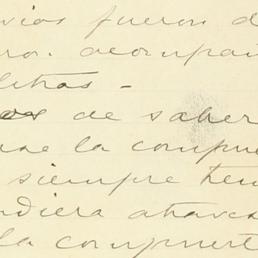 vios fueron d
ro. acompañ
letras -
de saber
la compu
siempre ten
ndiera atraves
la compuert